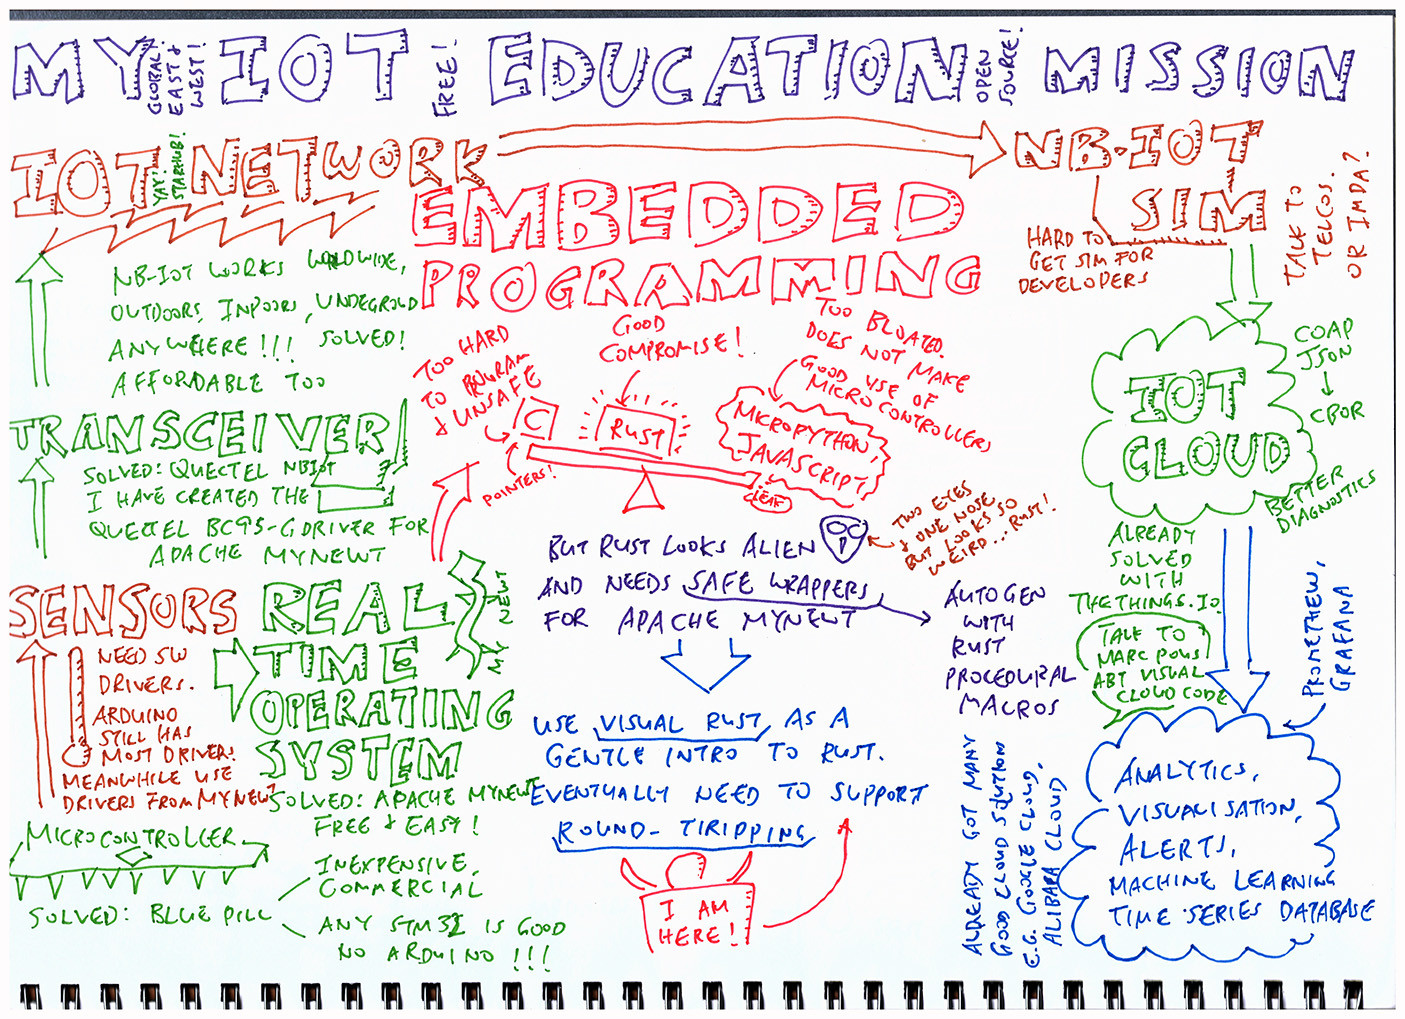 MY IOT EDUCATION MISSION
GLOBAL.
EAST &
WEST!
FREE!
OPEN
SOURCE!
IOT NETWORK
YAY!
STARHUB!
NB-IOT WORKS WORLDWIDE,
OUTDOORS, INDOORS, UNDEGROUD
ANYWHERE!!! SOLVED!
AFFORDABLE TOO
TRANSCEIVER
SOLVED: QUECTEL NBIOT
I HAVE CREATED THE
QUECTEL BC95-G DRIVER FOR
APACHE MYNEWT
SENSORS
NEED SW
DRIVERS.
ARDUINO
STILL HAS
MOST DRIVERS.
MEANWHILE USE
DRIVERS FROM MYNEWT
REAL
TIME
OPERATING
SYSTEM
MY NEWT
SOLVED: APACHE MYNEWT
FREE & EASY!
MICROCONTROLLER
SOLVED: BLUE PILL
INEXPENSIVE,
COMMERCIAL
ANY STM32 IS GOOD
NO ARDUINO!!!
EMBEDDED
PROGRAMMING
TOO HARD
TO PROGRAM
& UNSAFE
C
POINTERS!
GOOD
COMPROMISE!
RUST
TOO BLOATED.
DOES NOT MAKE
GOOD USE OF
MICROCONTROLLERS
MICROPYTHON,
JAVASCRIPT,
BUT RUST LOOKS ALIEN
AND NEEDS SAFE WRAPPERS
FOR APACHE MYNEWT
TWO EYES
& ONE NOSE,
BUT LOOKS SO
WEIRD... RUST!
AUTOGEN
WITH
RUST
PROCEDURAL
MACROS
USE VISUAL RUST AS A
GENTLE INTRO TO RUST.
EVENTUALLY NEED TO SUPPORT
ROUND-TIRIPPING
I AM
HERE!
NB-IOT
SIM
HARD TO
GET SIM FOR
DEVELOPERS
TALK TO
TELCOS.
OR IMDA?
IOT
CLOUD
COAP
JSON
CBOR
BETTER
DIAGNOSTICS
ALREADY
SOLVED
WITH
THETHINGS.IO
TALK TO
MARC PONS
ABT VISUAL
CLOUD CODE
PROMETHEW,
GRAFANA
ALREADY GOT MANY
GOOD CLOUD SOLUTION
E.G. GOOGLE CLOUD,
ALIBABA CLOUD
ANALYTICS,
VISUALISATION,
ALERTS,
MACHINE LEARNING
TIME SERIES DATABASE